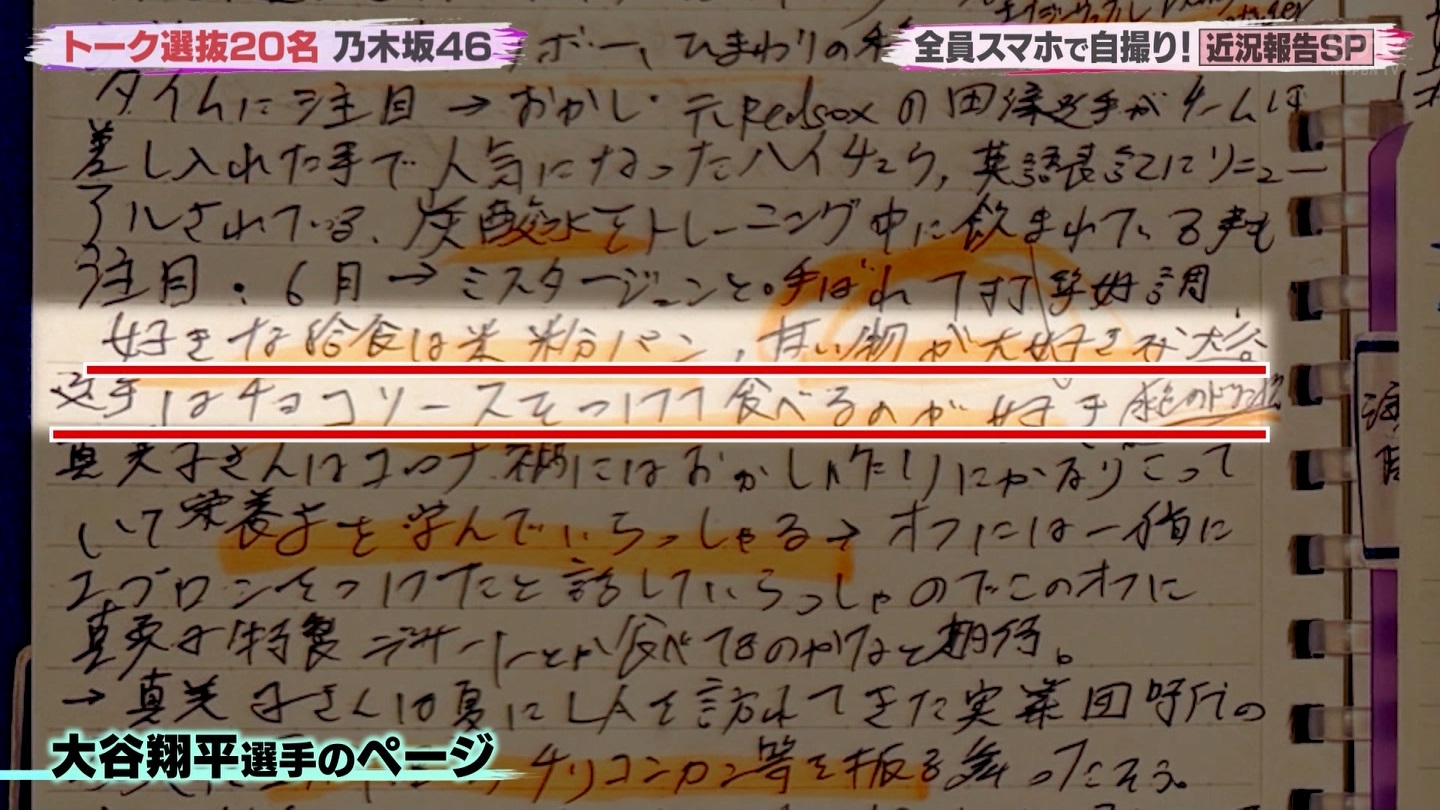 トーク選抜20名 乃木坂46
全員スマホで自撮り! 近況報告SP
NIPPON TV
ボー、ひまわりの
タイムに注目→おかし・元Redsoxの田澤選手がチームに
差し入れた事で人気になったハイチュウ,英語表記にリニュー
アルされている、炭酸水をトレーニング中に飲まれている事も
注目・6月→ミスタージュンと呼ばれて打撃好調
好きな給食は米粉パン,甘い物が大好きな大谷
選手はチョコソースをつけて食べるのが好き
真美子さんはコロナ禍にはおかし作りにかなりこって
いて栄養学を学んでいらっしゃる→オフには一緒に
エプロンをつけたと話していらっしゃのでこのオフに
真美子特製デザートとか食べてるのかなと期待。
→真美子さんは夏にLAを訪れてきた実業団時代の
チリコンカン等を振る舞ったそう。
大谷翔平選手のページ